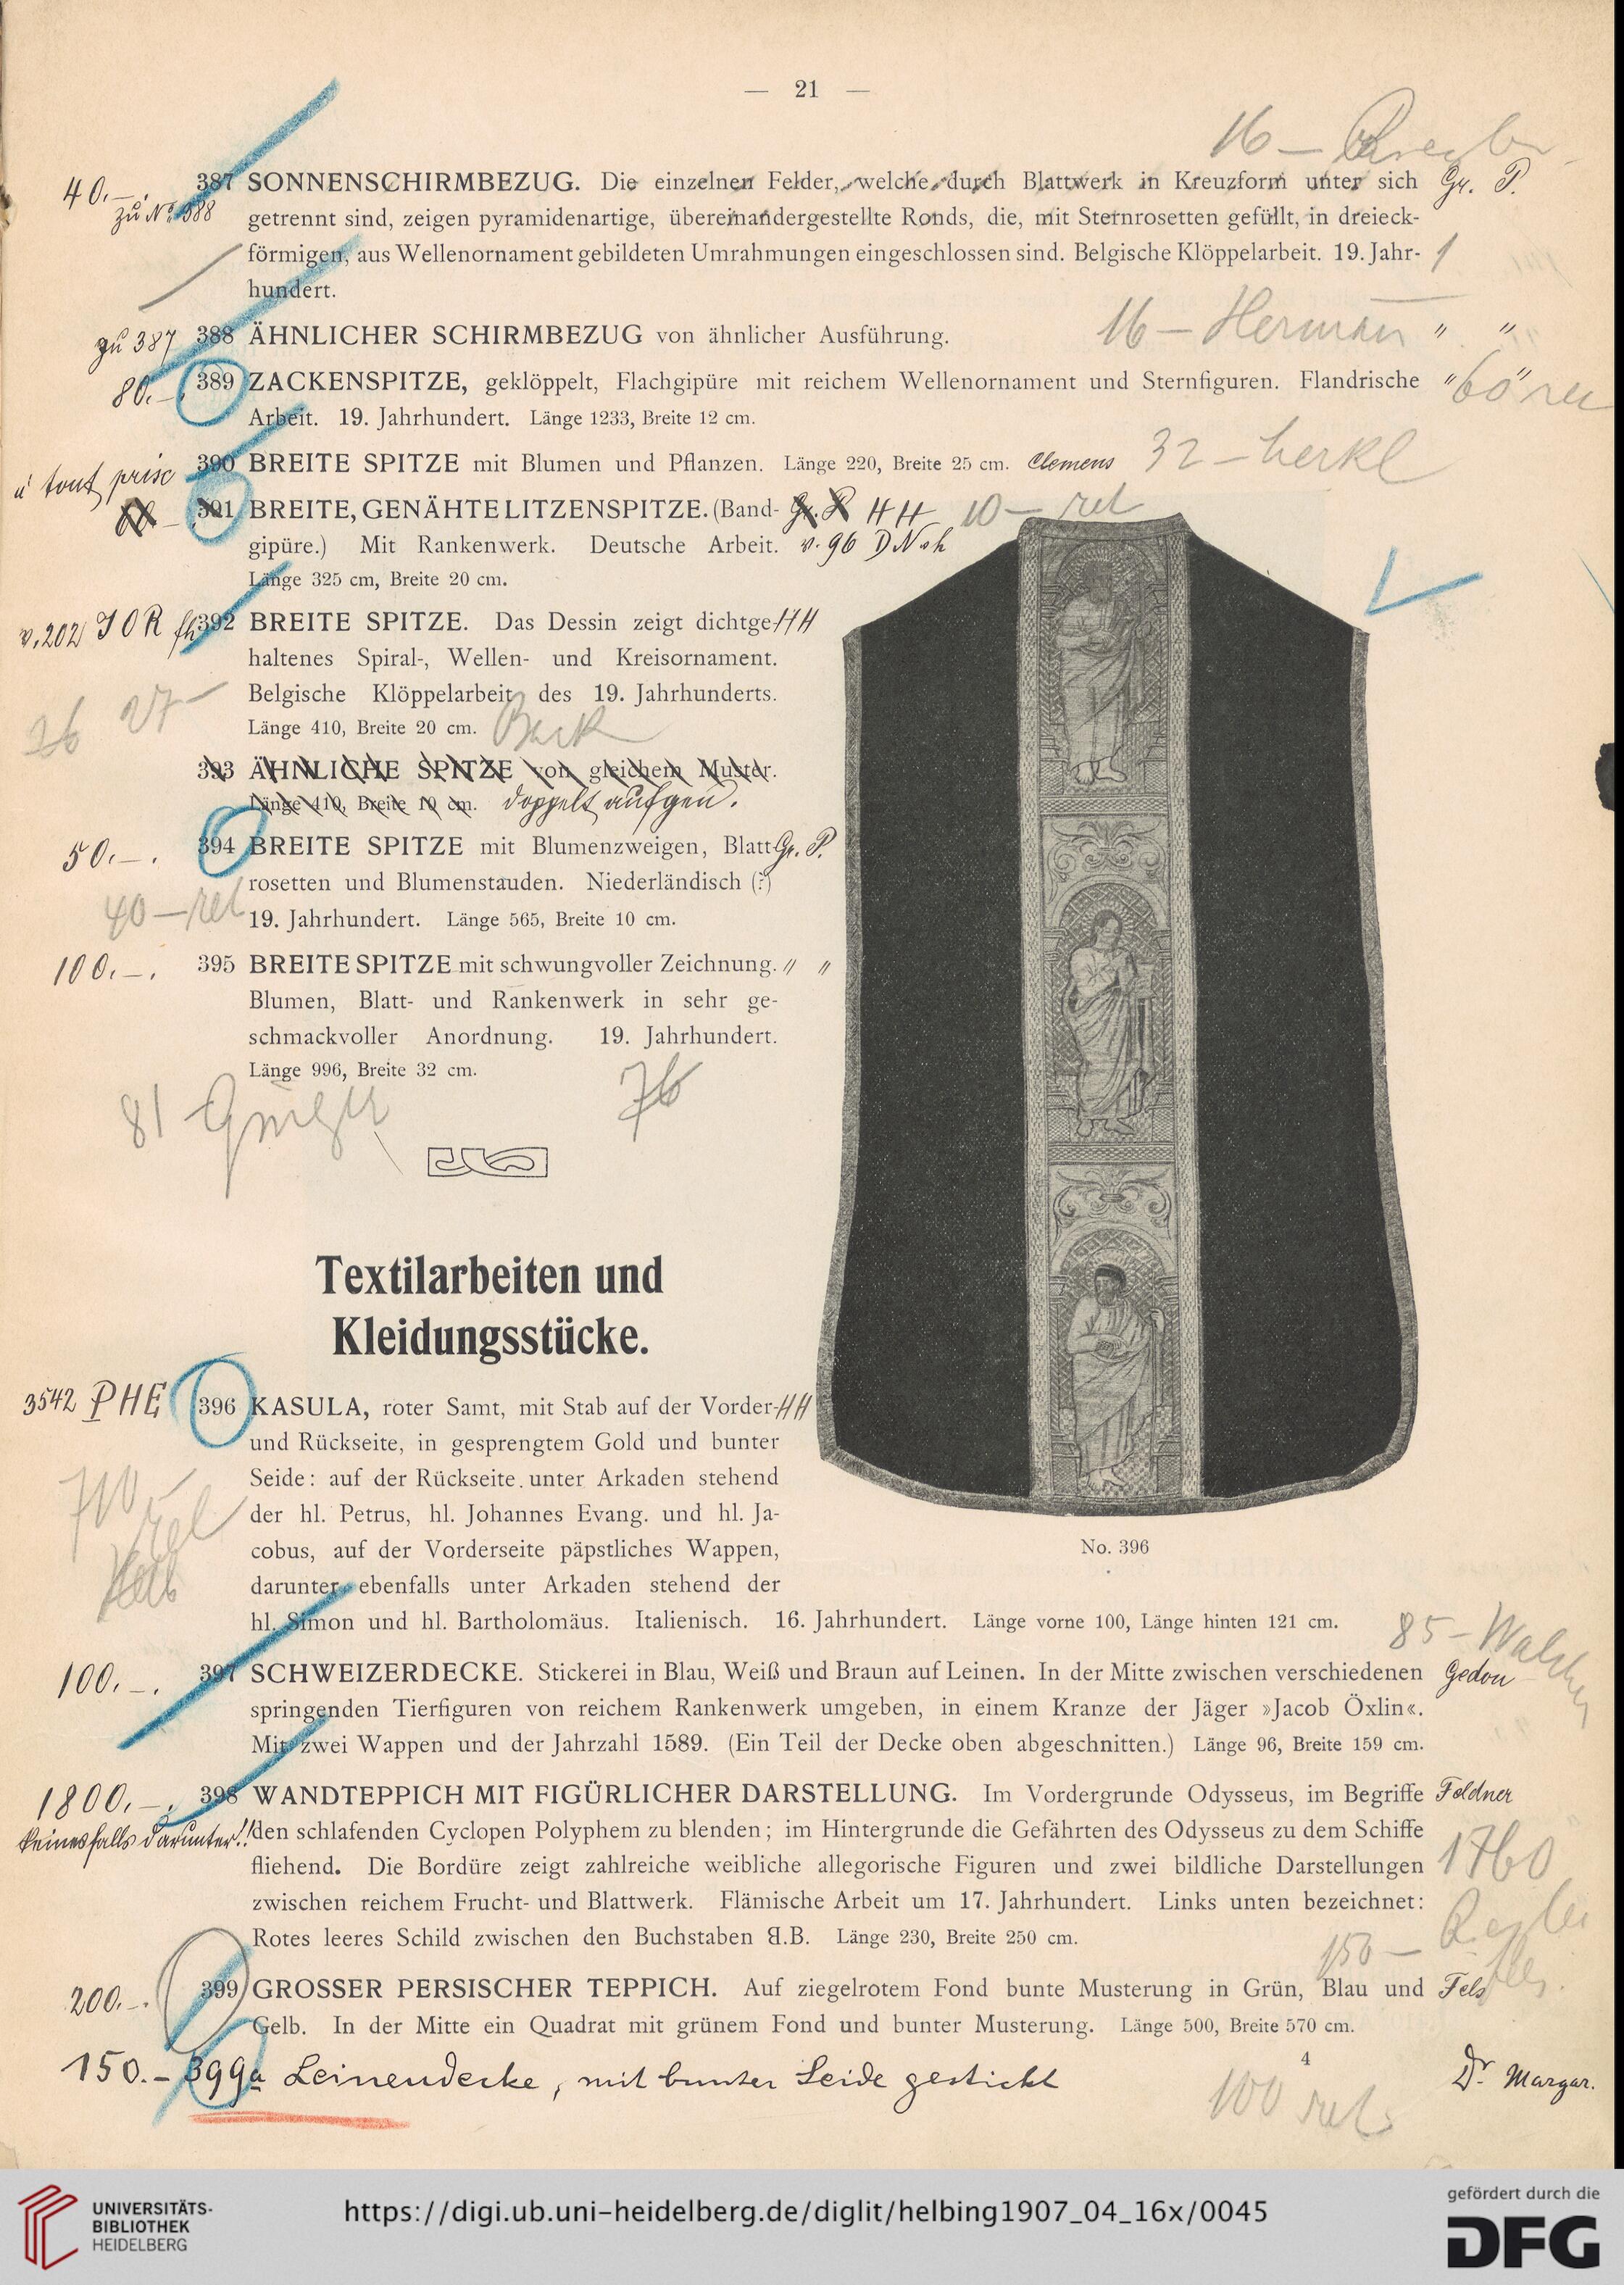 — 21 —
16 —
40.—.
387 SONNENSCHIRMBEZUG. Die einzelnen Felder, welche durch Blattwerk in Kreuzform unter sich Gr. P.
zu No. 388
getrennt sind, zeigen pyramidenartige, übereinandergestellte Ronds, die, mit Sternrosetten gefüllt, in dreieck-
förmigen, aus Wellenornament gebildeten Umrahmungen eingeschlossen sind. Belgische Klöppelarbeit. 19. Jahr-
hundert.
zu 387 388 ÄHNLICHER SCHIRMBEZUG von ähnlicher Ausführung. 16 — Herman " "
80.—. 389 ZACKENSPITZE, geklöppelt, Flachgipüre mit reichem Wellenornament und Sternfiguren. Flandrische " "
Arbeit. 19. Jahrhundert. Länge 1233, Breite 12 cm.
à tout prise 390 BREITE SPITZE mit Blumen und Pflanzen. Länge 220, Breite 25 cm. Clemens 32 — Herkl
391 BREITE, GENÄHTE LITZENSPITZE. (Band- Gr. P. HH 10 — ret
gipüre.) Mit Rankenwerk. Deutsche Arbeit. v. 96
Länge 325 cm, Breite 20 cm.
v. 202 JOR 392 BREITE SPITZE. Das Dessin zeigt dichtge- HH
haltenes Spiral-, Wellen- und Kreisornament.
26 27 —
Belgische Klöppelarbeit des 19. Jahrhunderts.
Länge 410, Breite 20 cm. Back
393 ÄHNLICHE SPITZE von gleichem Muster.
Länge 410, Breite 10 cm. doppelt aufgen.
50.—. 394 BREITE SPITZE mit Blumenzweigen, Blatt- Gr. P.
rosetten und Blumenstauden. Niederländisch (?)
40 — ret
19. Jahrhundert. Länge 565, Breite 10 cm.
100.—. 395 BREITE SPITZE mit schwungvoller Zeichnung. " "
Blumen, Blatt- und Rankenwerk in sehr ge-
schmackvoller Anordnung. 19. Jahrhundert.
Länge 996, Breite 32 cm.
81 76
Textilarbeiten und
Kleidungsstücke.
3542 PHE 396 KASULA, roter Samt, mit Stab auf der Vorder- HH
und Rückseite, in gesprengtem Gold und bunter
Seide: auf der Rückseite unter Arkaden stehend
710 — ret
der hl. Petrus, hl. Johannes Evang. und hl. Ja-
cobus, auf der Vorderseite päpstliches Wappen,
darunter, ebenfalls unter Arkaden stehend der
hl. Simon und hl. Bartholomäus. Italienisch. 16. Jahrhundert. Länge vorne 100, Länge hinten 121 cm.
No. 396
85 —
100.—. 397 SCHWEIZERDECKE. Stickerei in Blau, Weiß und Braun auf Leinen. In der Mitte zwischen verschiedenen Gedon
springenden Tierfiguren von reichem Rankenwerk umgeben, in einem Kranze der Jäger »Jacob Öxlin«.
Mit zwei Wappen und der Jahrzahl 1589. (Ein Teil der Decke oben abgeschnitten.) Länge 96, Breite 159 cm.
1800.—. 398 WANDTEPPICH MIT FIGÜRLICHER DARSTELLUNG. Im Vordergrunde Odysseus, im Begriffe Feldner
keinesfalls darunter!!
den schlafenden Cyclopen Polyphem zu blenden; im Hintergrunde die Gefährten des Odysseus zu dem Schiffe
fliehend. Die Bordüre zeigt zahlreiche weibliche allegorische Figuren und zwei bildliche Darstellungen 1760
zwischen reichem Frucht- und Blattwerk. Flämische Arbeit um 17. Jahrhundert. Links unten bezeichnet:
Rotes leeres Schild zwischen den Buchstaben B.B. Länge 230, Breite 250 cm.
150 —
200.—. 399 GROSSER PERSISCHER TEPPICH. Auf ziegelrotem Fond bunte Musterung in Grün, Blau und Fels
Gelb. In der Mitte ein Quadrat mit grünem Fond und bunter Musterung. Länge 500, Breite 570 cm.
4
150.— 399a Leinendecke, mit bunter Seide gestickt Dr. Margar.
100 ret
UNIVERSITÄTS-
BIBLIOTHEK
HEIDELBERG
https://digi.ub.uni-heidelberg.de/diglit/helbing1907_04_16x/0045
gefördert durch die
DFG